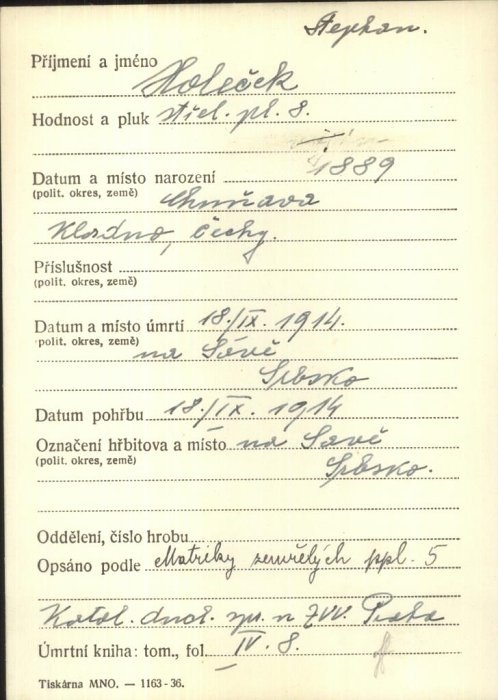 Stephan.
Příjmení a jméno Holeček
Hodnost a pluk střel. pl. 8.
1889
Datum a místo narození
(polit. okres, země) Chyňava
Kladno, Čechy.
Příslušnost
(polit. okres, země)
Datum a místo úmrtí 18./IX. 1914.
(polit. okres, země) na Sávě
Srbsko
Datum pohřbu 18./IX. 1914
Označení hřbitova a místo na Savě
(polit. okres, země) Srbsko.
Oddělení, číslo hrobu
Opsáno podle Matriky zemřelých ppl. 5
Katol. duch. spr. n ZVV. Praha
Úmrtní kniha: tom., fol. IV. 8.
Tiskárna MNO. — 1163-36.